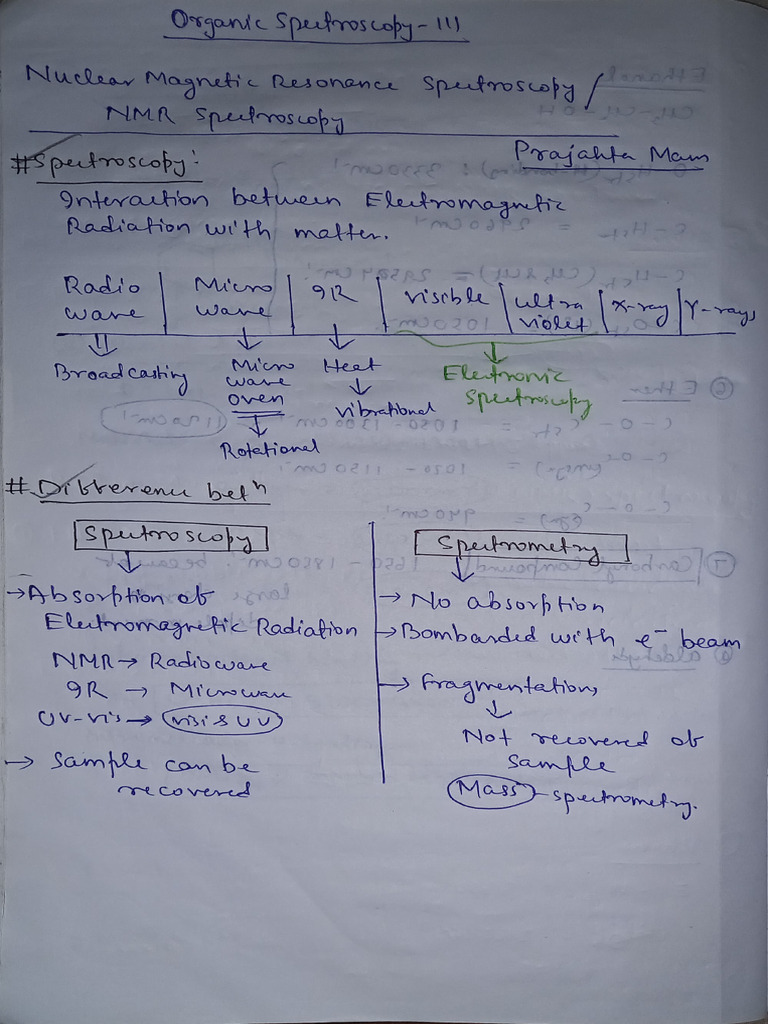 Organic Spectroscopy - III
Nuclear Magnetic Resonance Spectroscopy /
NMR Spectroscopy
Prajakta Mam
# Spectroscopy :
Interaction between Electromagnetic
Radiation with matter.
Radio wave | Micro wave | IR | visible | ultra violet | X-ray | γ-rays
Broadcasting
Micro wave oven
Heat
Electronic Spectroscopy
vibrational
Rotational
# Difference betn
Spectroscopy
→ Absorption of
Electromagnetic Radiation
NMR → Radiowave
IR → Microwave
UV-vis → visi & UV
→ Sample can be
recovered
Spectrometry
→ No absorption
→ Bombarded with e⁻ beam
→ Fragmentations
Not recovered of
Sample
Mass - spectrometry.